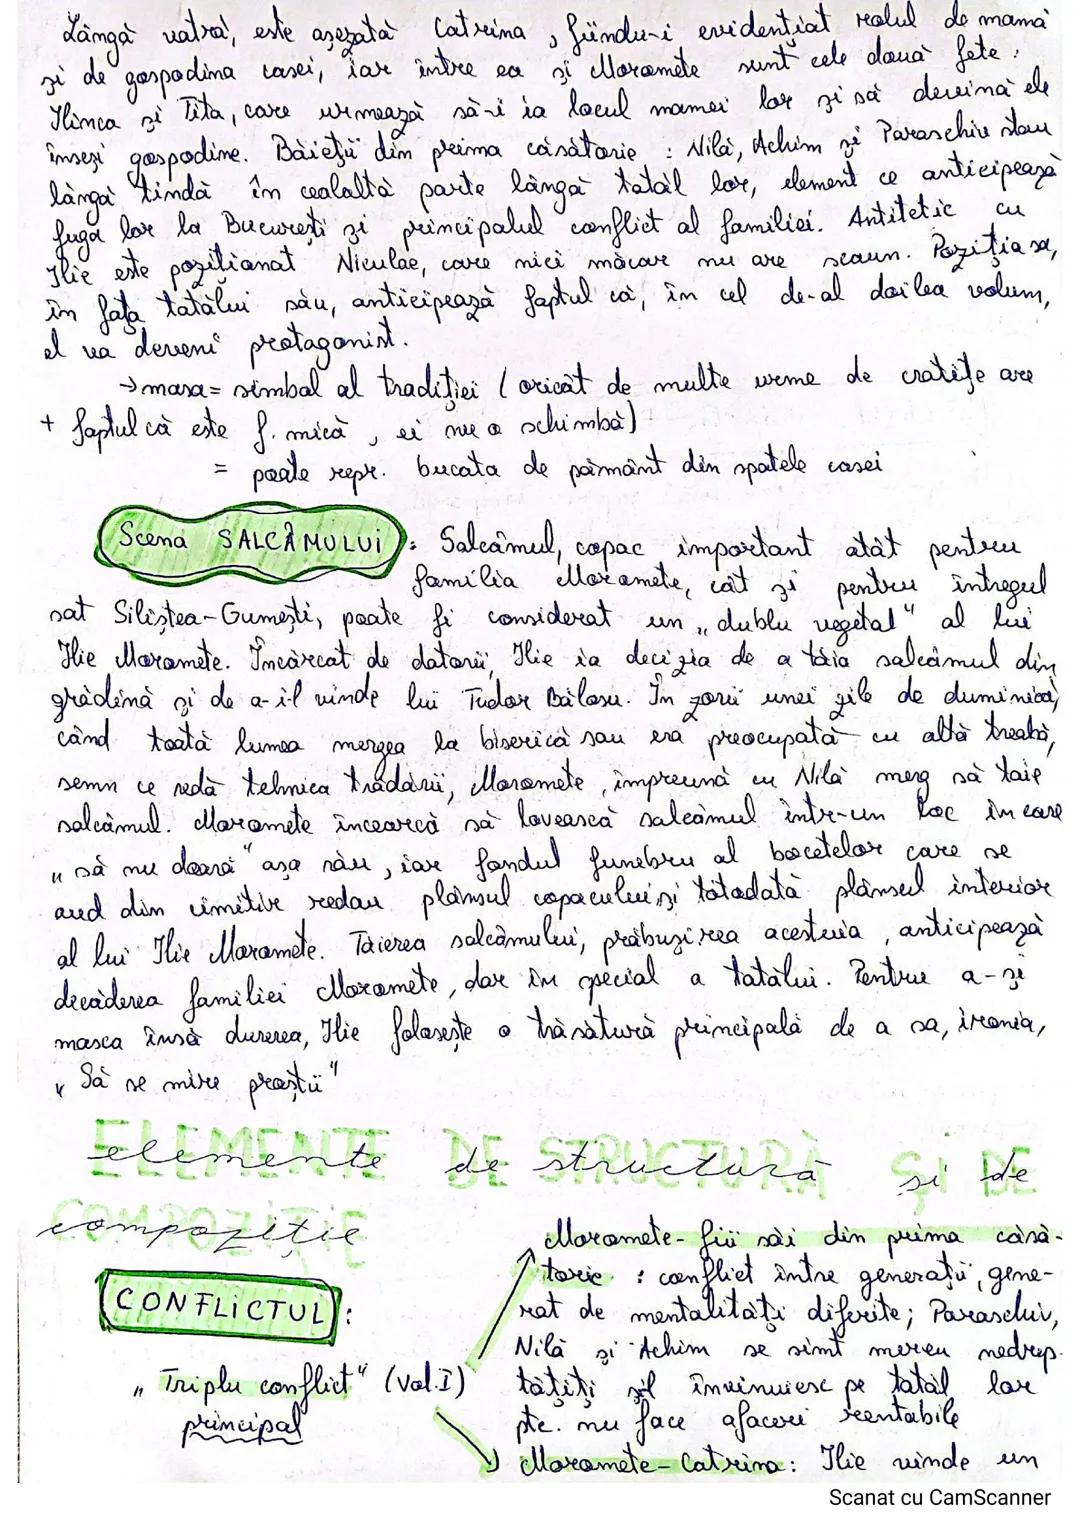 Lângă vatră, este așezată Catrina, fiindu-i evidențiat rolul de mamă
și de gospodina casei, iar între ea și Moromete sunt cele două fete:
Ilinca și Tita, care urmează să-i ia locul mamei lor și să devină ele
însești gospodine. Băieții din prima căsătorie: Nilă, Achim și Paraschiv stau
lângă tindă în cealaltă parte lângă tatăl lor, element ce anticipează
fuga lor la București și principalul conflict al familiei. Antitetic cu
Ilie este poziționat Niculae, care nici măcar nu are scaun. Poziția sa,
în fața tatălui său, anticipează faptul că, în cel de-al doilea volum,
el va deveni protagonist.
→ masa = simbol al tradiției (oricât de multe urme de cratițe are
+ faptul că este f. mică, ei nu o schimbă)
= poate repr. bucata de pământ din spatele casei
Scena SALCÂMULUI: Salcâmul, copac important atât pentru
familia Moromete, cât și pentru întregul
sat Siliștea-Gumești, poate fi considerat un „dublu vegetal" al lui
Ilie Moromete. Încărcat de datorii, Ilie ia decizia de a tăia salcâmul din
grădină și de a-il vinde lui Tudor Bălosu. În zorii unei zile de duminică,
când toată lumea mergea la biserică sau era preocupată cu altă treabă,
semn ce redă tehnica trădării, Moromete, împreună cu Nilă merg să taie
salcâmul. Moromete încearcă să lovească salcâmul într-un loc în care
„să nu doară" așa rău, iar fondul funebru al bocetelor care se
aud din cimitir redau plânsul copacului și totodată plânsul interior
al lui Ilie Moromete. Tăierea salcâmului, prăbușirea acestuia, anticipează
decăderea familiei Moromete, dar în special a tatălui. Pentru a-și
masca însă durerea, Ilie folosește o trăsătură principală de a sa, ironia,
„Să se mire proștii"
ELEMENTE DE STRUCTURĂ ȘI DE
COMPOZIȚIE
Moromete - fiii săi din prima căsă-
torie: conflict între generații, gene-
rat de mentalități diferite; Paraschiv,
CONFLICTUL:
Nilă și Achim se simt mereu nedrep-
„Triplu conflict" (vol.I)
tățiți și îl învinuiesc pe tatăl lor
principal
ptc. nu face afaceri rentabile
Moromete - Catrina: Ilie vinde un
Scanat cu CamScanner